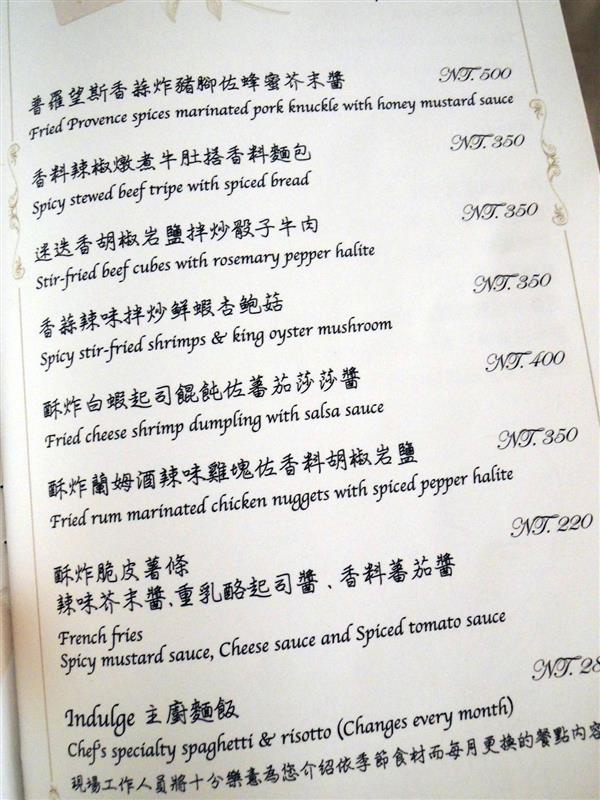 普羅望斯香蒜炸豬腳佐蜂蜜芥末醬 NT. 500
Fried Provence spices marinated pork knuckle with honey mustard sauce
香料辣椒燉煮牛肚搭香料麵包 NT. 350
Spicy stewed beef tripe with spiced bread
迷迭香胡椒岩鹽拌炒骰子牛肉 NT. 350
Stir-fried beef cubes with rosemary pepper halite
香蒜辣味拌炒鮮蝦杏鮑菇 NT. 350
Spicy stir-fried shrimps & king oyster mushroom
酥炸白蝦起司餛飩佐蕃茄莎莎醬 NT. 400
Fried cheese shrimp dumpling with salsa sauce
酥炸蘭姆酒辣味雞塊佐香料胡椒岩鹽 NT. 350
Fried rum marinated chicken nuggets with spiced pepper halite
酥炸脆皮薯條 NT. 220
辣味芥末醬,重乳酪起司醬、香料蕃茄醬
French fries
Spicy mustard sauce, Cheese sauce and Spiced tomato sauce
Indulge 主廚麵飯 NT. 28
Chef's specialty spaghetti & risotto (Changes every month)
現場工作人員將十分樂意為您介紹依季節食材而每月更換的餐點內容